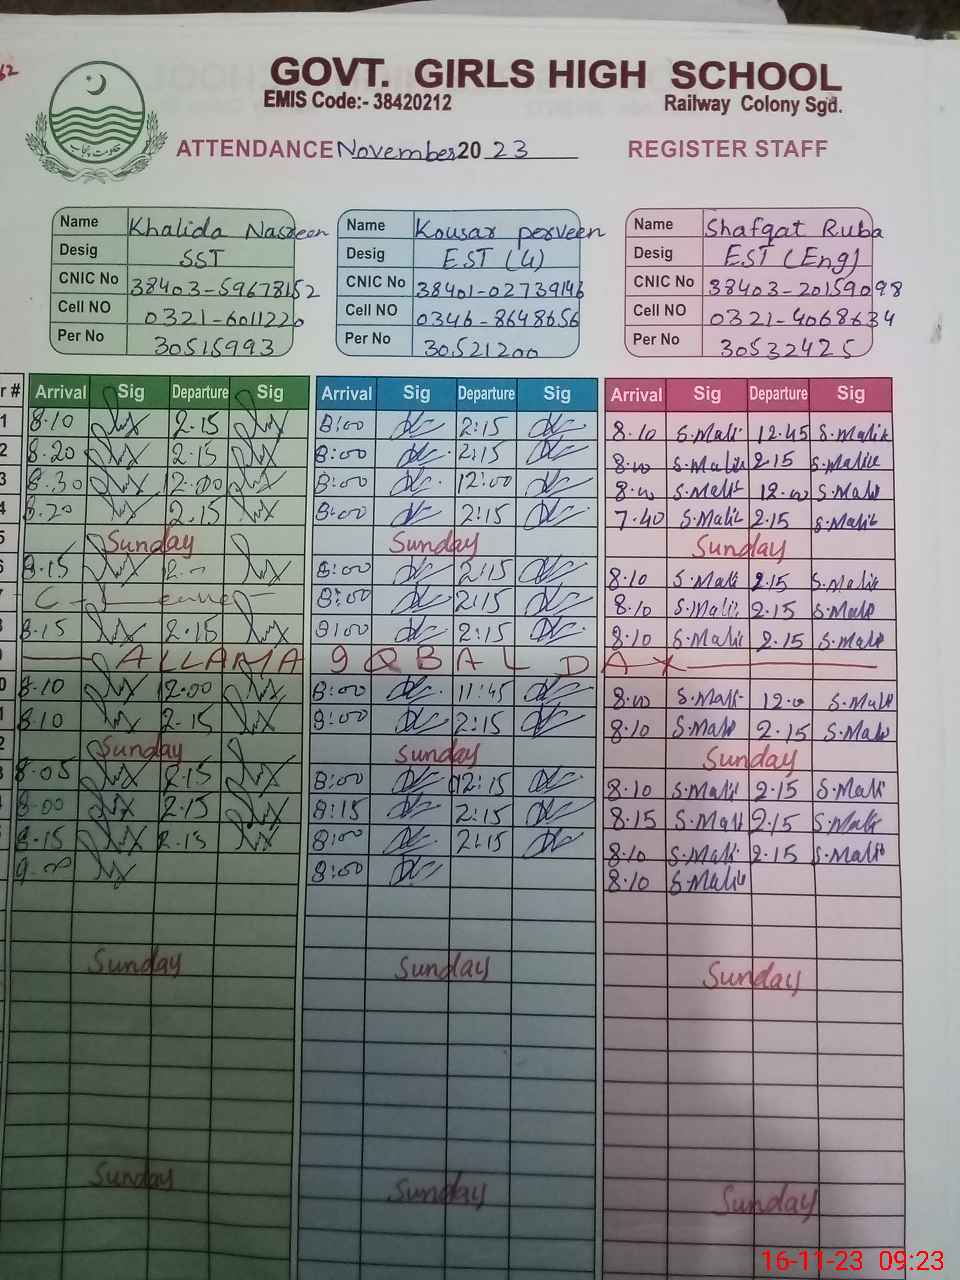 62
GOVT. GIRLS HIGH SCHOOL
EMIS Code:- 38420212 Railway Colony Sgd.
ATTENDANCE November 2023 REGISTER STAFF
Name Khalida Nasreen Name Kousar perveen Name Shafqat Ruba
Desig SST Desig EST (U) Desig EST (Eng)
CNIC No 38403-59678152 CNIC No 38401-02739146 CNIC No 38403-20159098
Cell NO 0321-6011220 Cell NO 0346-8648656 Cell NO 0321-4068634
Per No 30515993 Per No 30521200 Per No 30532425
r # Arrival Sig Departure Sig Arrival Sig Departure Sig Arrival Sig Departure Sig
1 8.10 2.15 8:00 2:15 8.10 S.Mali 12.45 S.Malik
2 8.20 2.15 8:00 2:15 8.10 S.Malik 2.15 S.Malik
3 8.30 12.00 8:00 12:00 8.10 S.Malik 12.00 S.Malik
4 8.20 2.15 8:00 2:15 7.40 S.Malik 2.15 S.Malik
5 Sunday Sunday Sunday
6 8.15 8:00 2:15 8.10 S.Mali 2.15 S.Malik
7 C-Leave 8:00 2:15 8.10 S.Mali 2.15 S.Malik
8 8.15 2.15 8:00 2:15 8.10 S.Malik 2.15 S.Malik
9 ALLAMA IQBAL DAY
0 8.10 12.00 8:00 11:45 8.10 S.Mali 12.0 S.Malik
1 8.10 2.15 8:00 2:15 8.10 S.Malik 2.15 S.Malik
2 Sunday Sunday Sunday
3 8.05 2.15 8:00 12:15 8.10 S.Mali 2.15 S.Mali
4 8.00 2.15 8:15 2:15 8.15 S.Mali 2.15 S.Malik
5 8.15 2.15 8:00 2:15 8.10 S.Mali 2.15 S.Malik
9.00 8:00 8.10 S.Malik
Sunday Sunday Sunday
Sunday Sunday Sunday
16-11-23 09:23